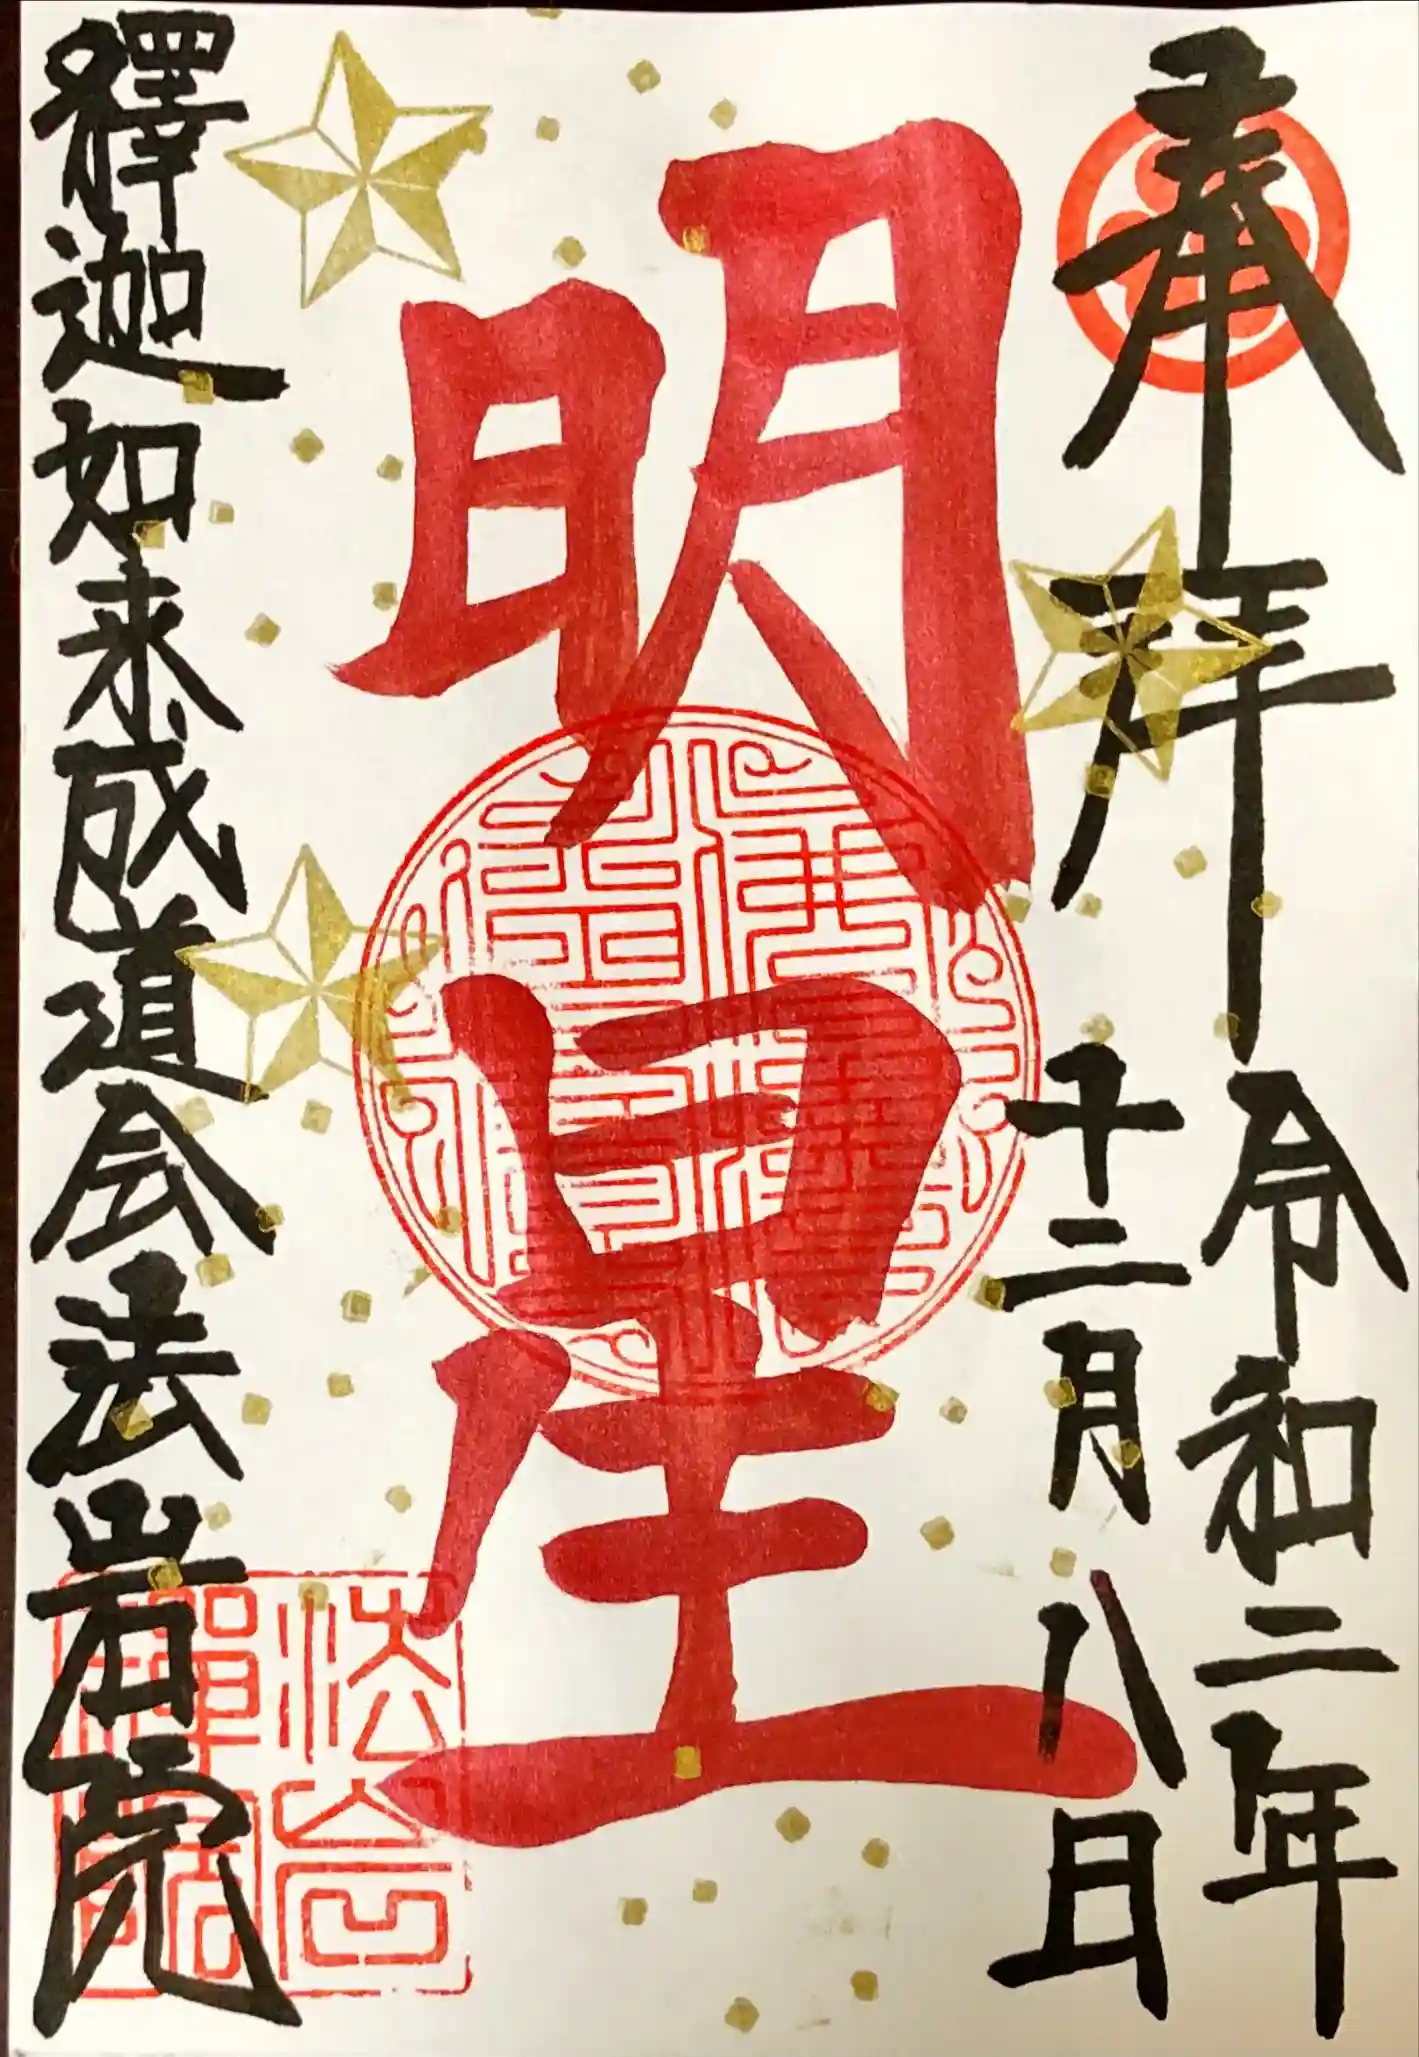 奉拝
令和二年
十二月八日
明星
釋迦如来成道会
法岩院